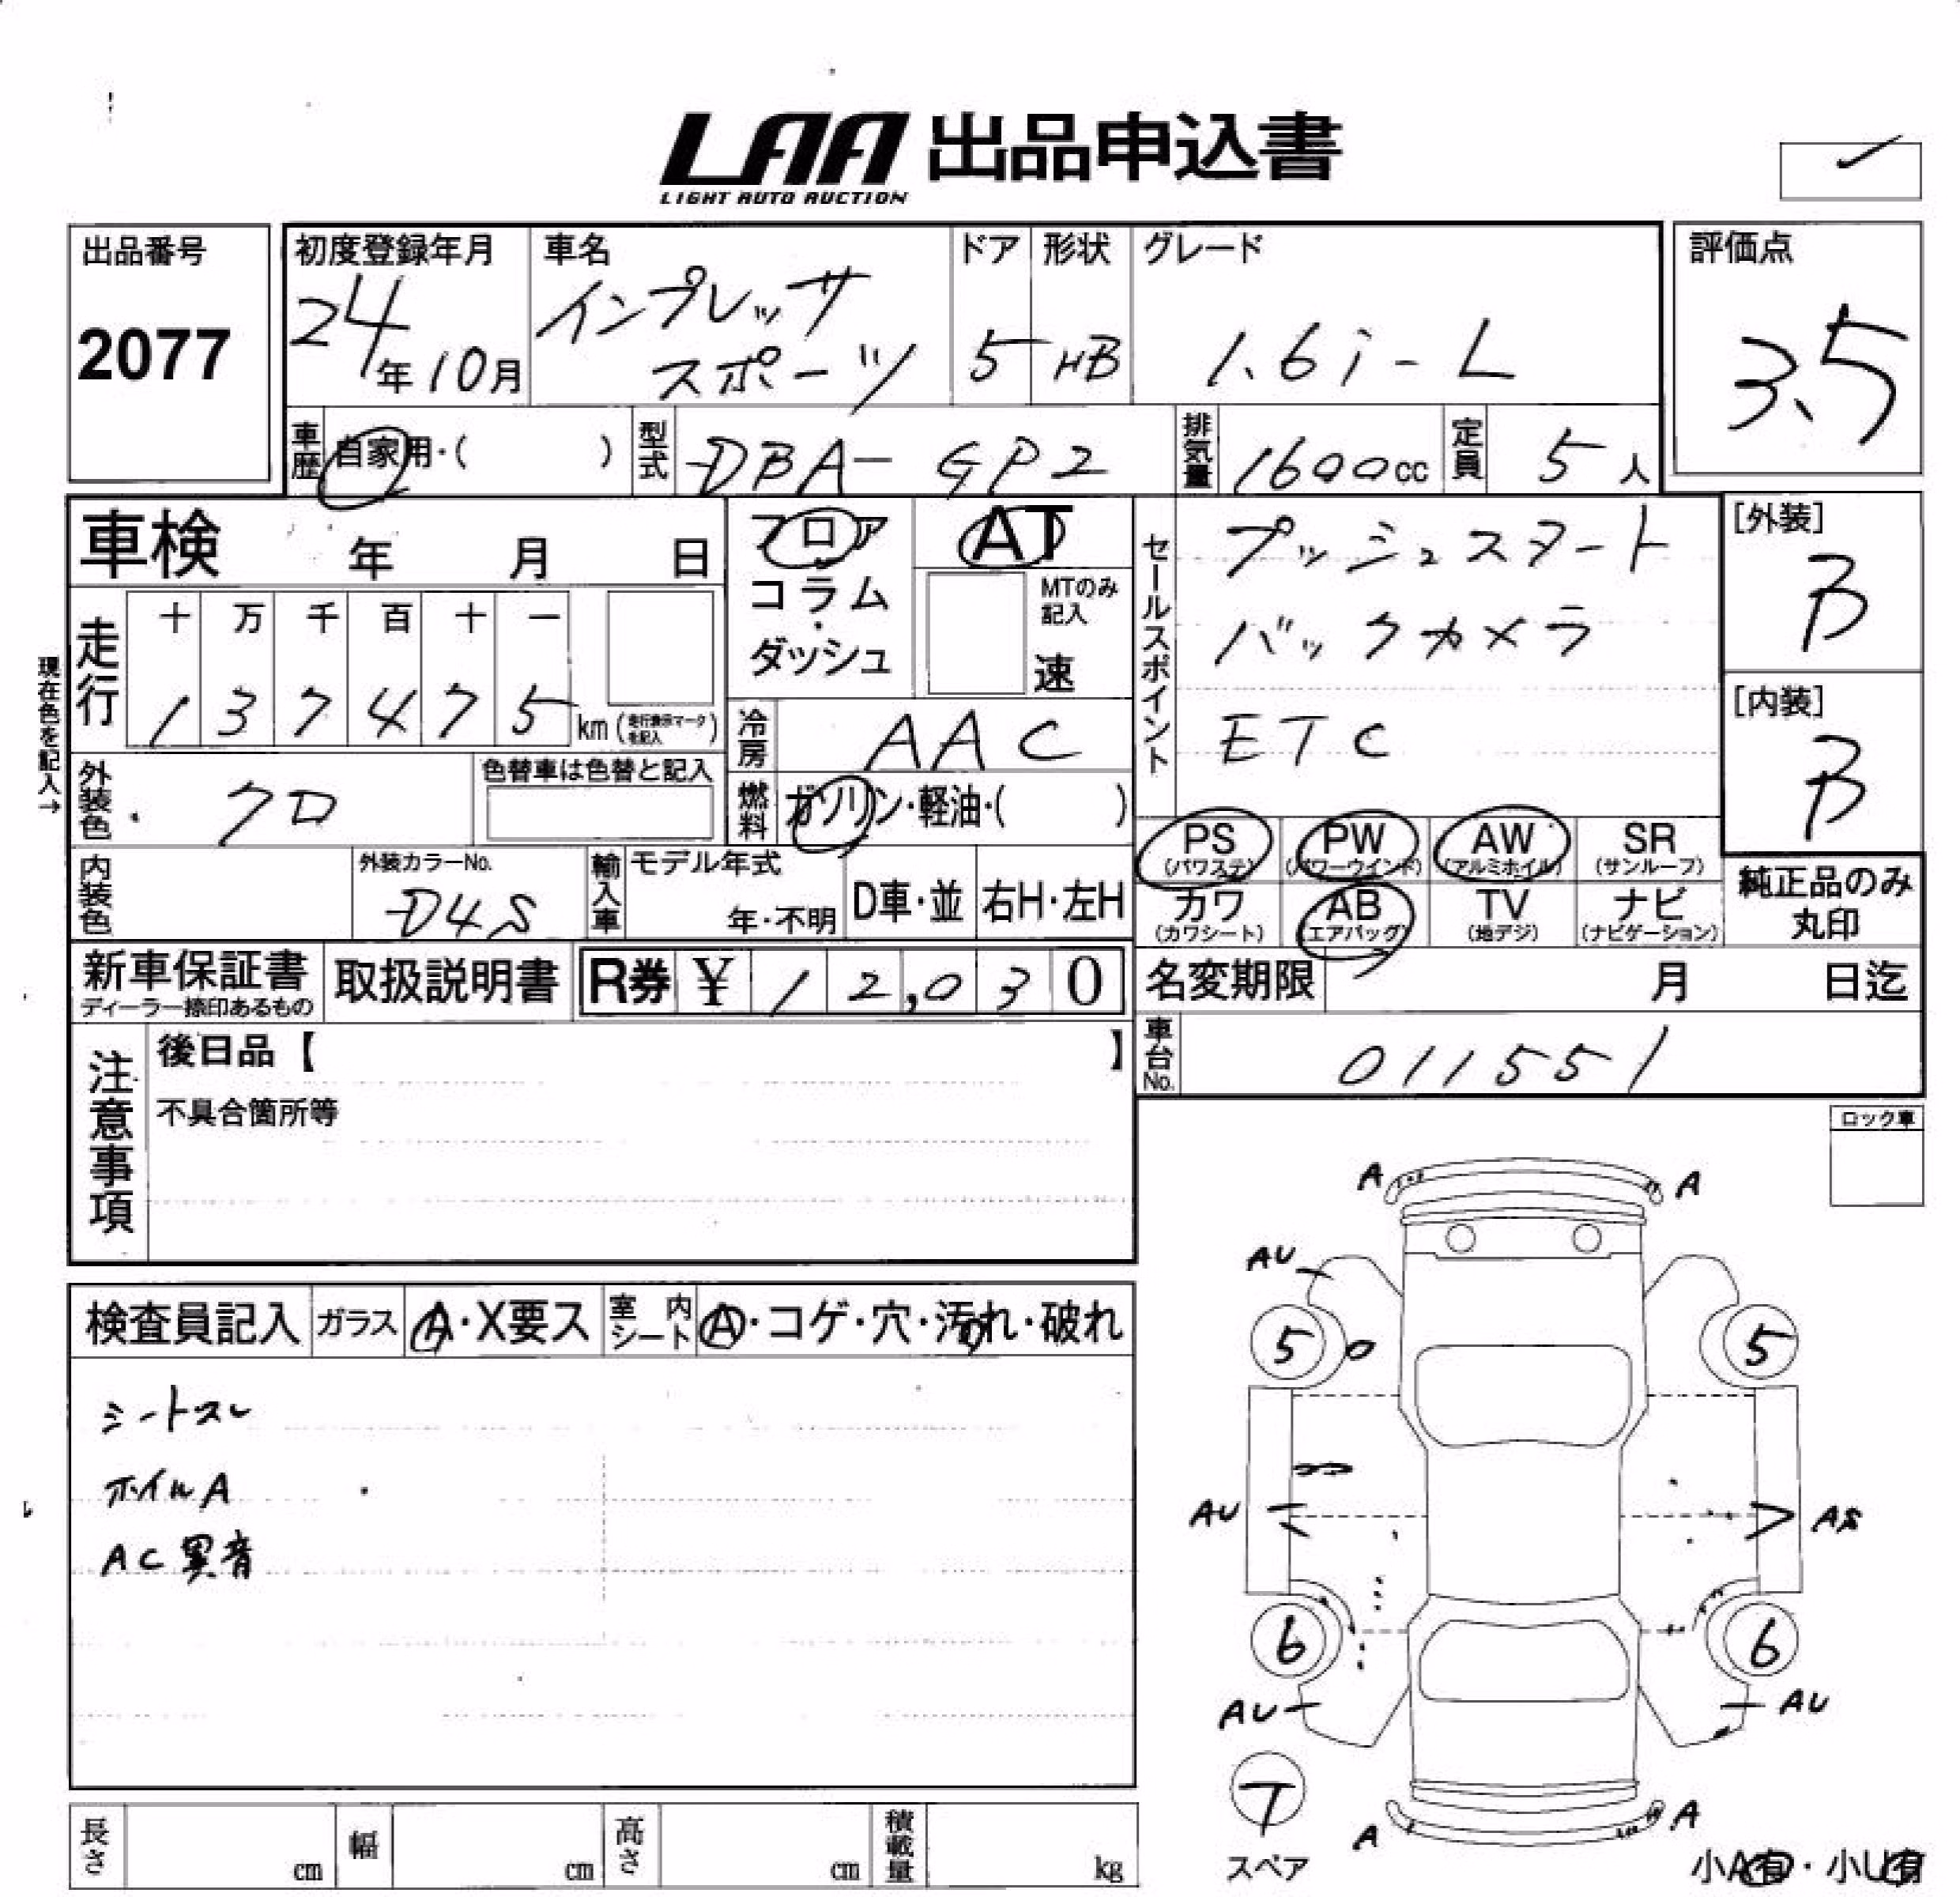 LAA 出品申込書
LIGHT AUTO AUCTION
出品番号
2077
初度登録年月
24年10月
車名
インプレッサ
スポーツ
ドア
5
形状
HB
グレード
1.6i-L
評価点
3.5
車歴
自家用・( )
型式
DBA-GP2
排気量
1600cc
定員
5人
車検 年 月 日
フロア
コラム
・
ダッシュ
AT
MTのみ
記入
速
セールスポイント
プッシュスタート
バックカメラ
ETC
[外装]
B
[内装]
B
現在色を記入→
走行
十 万 千 百 十 一
1 3 7 4 7 5 km (走行表示マークを記入)
冷房
AAC
外装色
クロ
色替車は色替と記入
燃料
ガソリン・軽油・( )
PS
(パワステ)
PW
(パワーウインド)
AW
(アルミホイル)
SR
(サンルーフ)
カワ
(カワシート)
AB
(エアバッグ)
TV
(地デジ)
ナビ
(ナビゲーション)
純正品のみ
丸印
内装色
外装カラーNo.
D4S
輸入車
モデル年式
年・不明
D車・並
右H・左H
新車保証書
ディーラー捺印あるもの
取扱説明書
R券 ¥ 12,030
名変期限 月 日迄
車台No.
011551
注意事項
後日品【 】
不具合箇所等
ロック車
検査員記入
ガラス
A・X要ス
室内シート
A・コゲ・穴・汚れ・破れ
シートスレ
ホイルA
AC異音
A A
AU
5 5
AU AS
6 6
AU AU
T
スペア
A A
小A有・小U有
長さ cm
幅 cm
高さ cm
積載量 kg